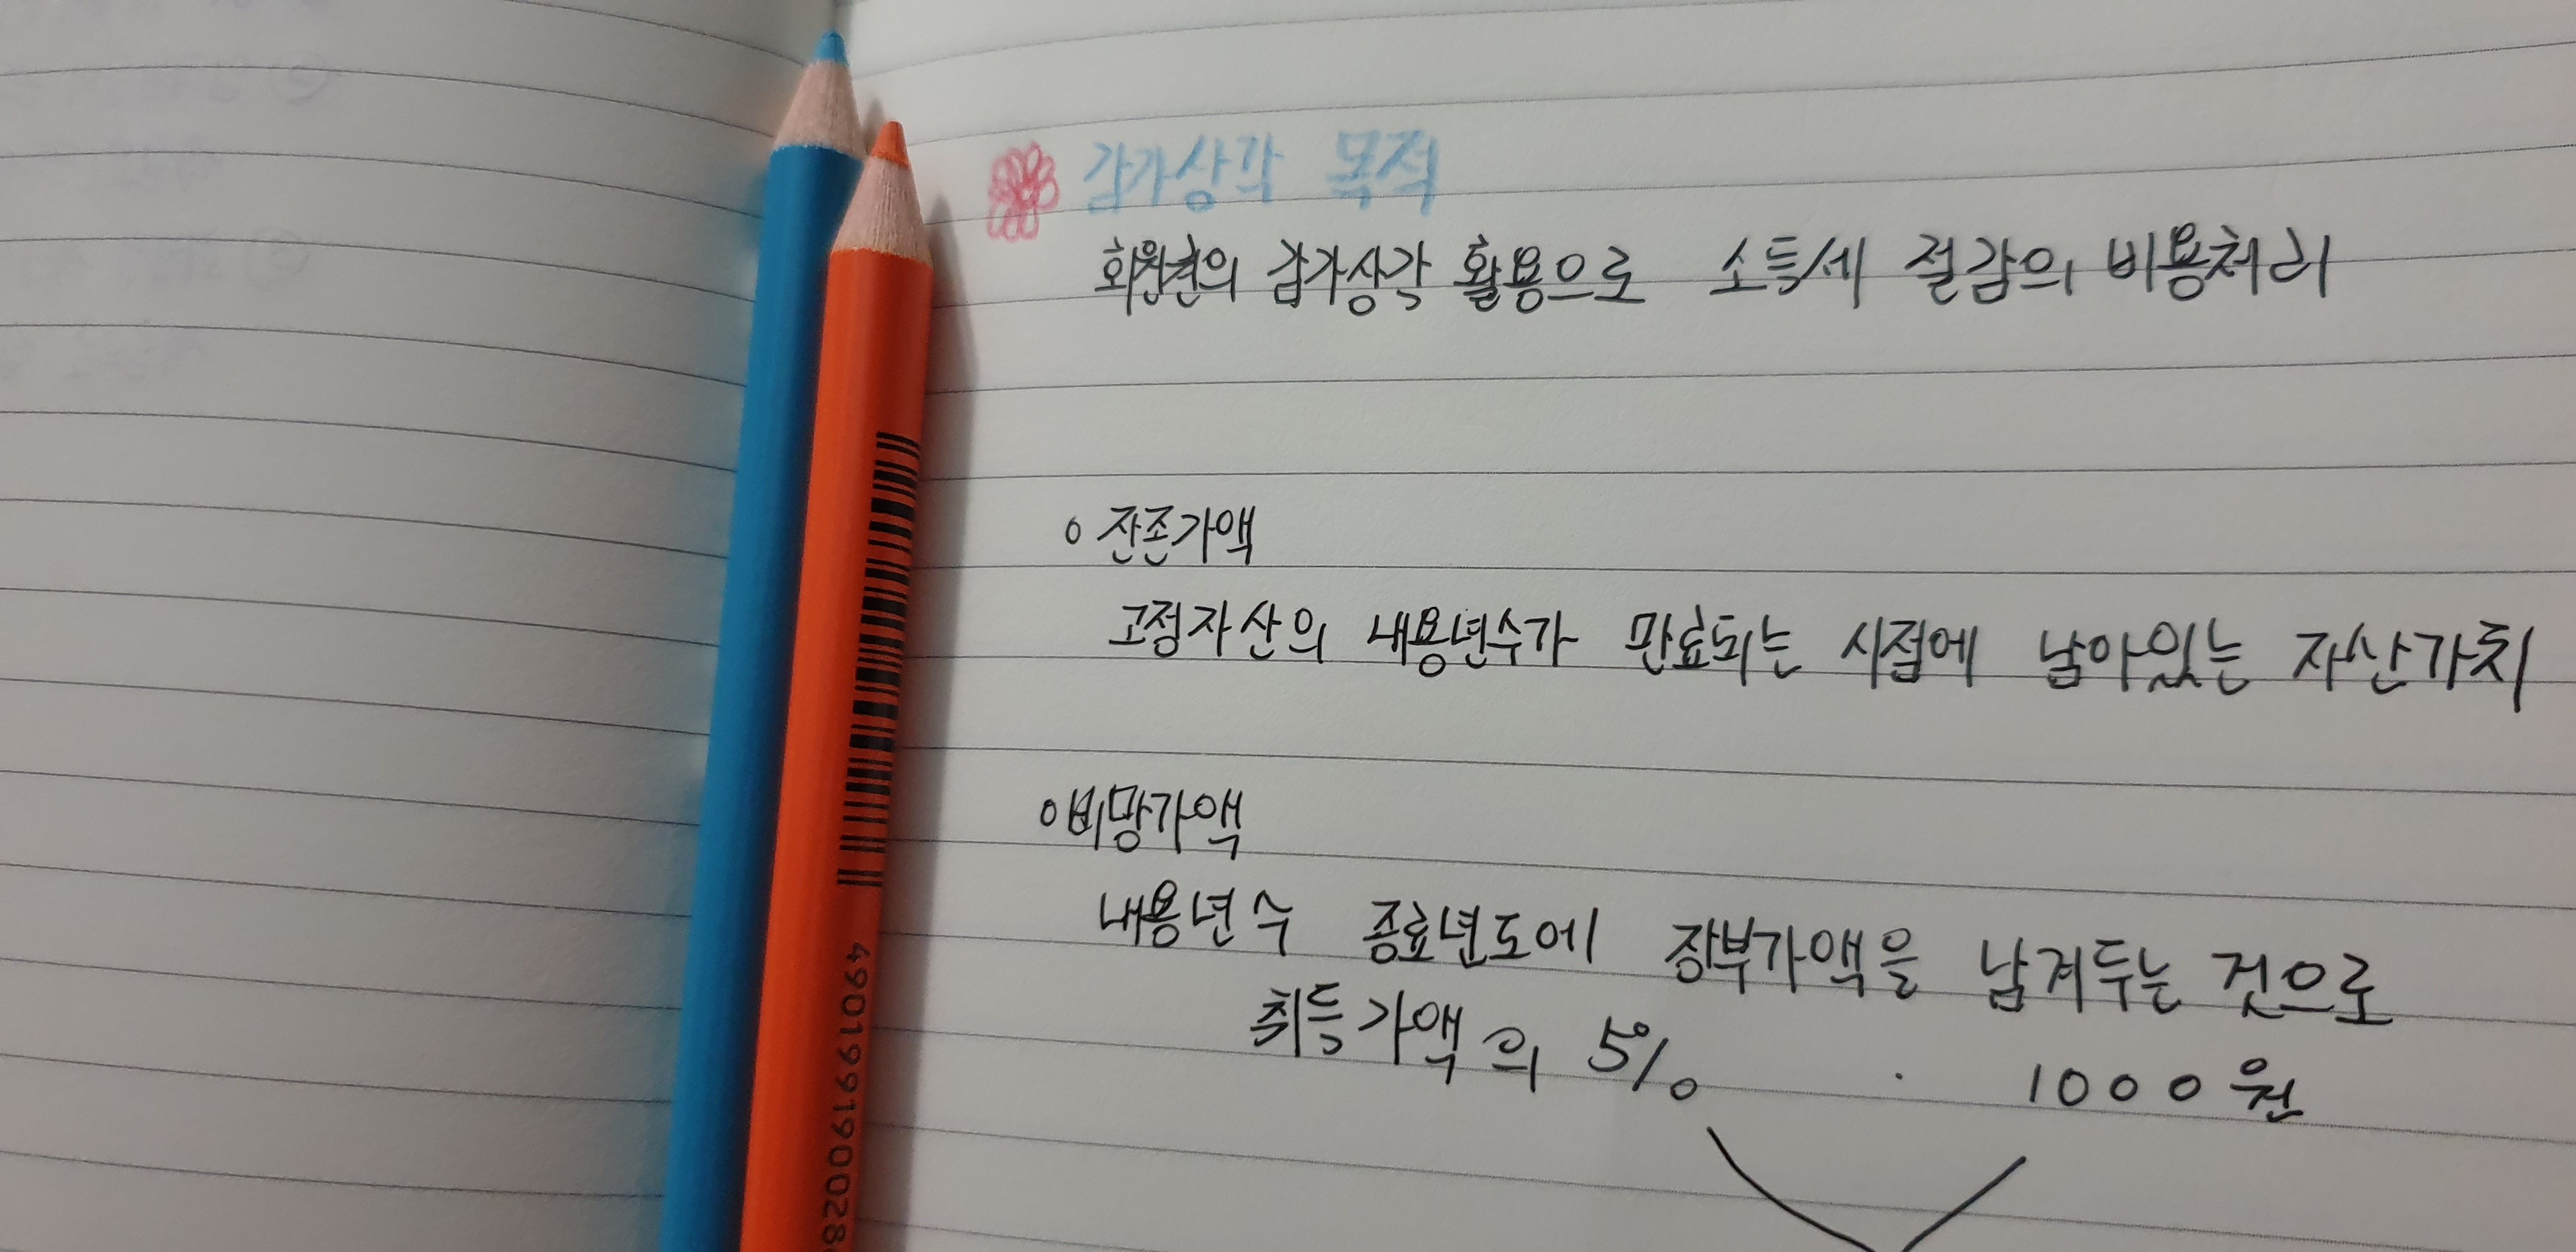 감가상각 목적
회원권의 감가상각 활용으로 소득세 절감의 비용처리
○ 잔존가액
고정자산의 내용년수가 만료되는 시점에 남아있는 자산가치
○비망가액
내용년수 종료년도에 장부가액을 남겨두는 것으로
취득가액의 5% . 1000원
490199190028